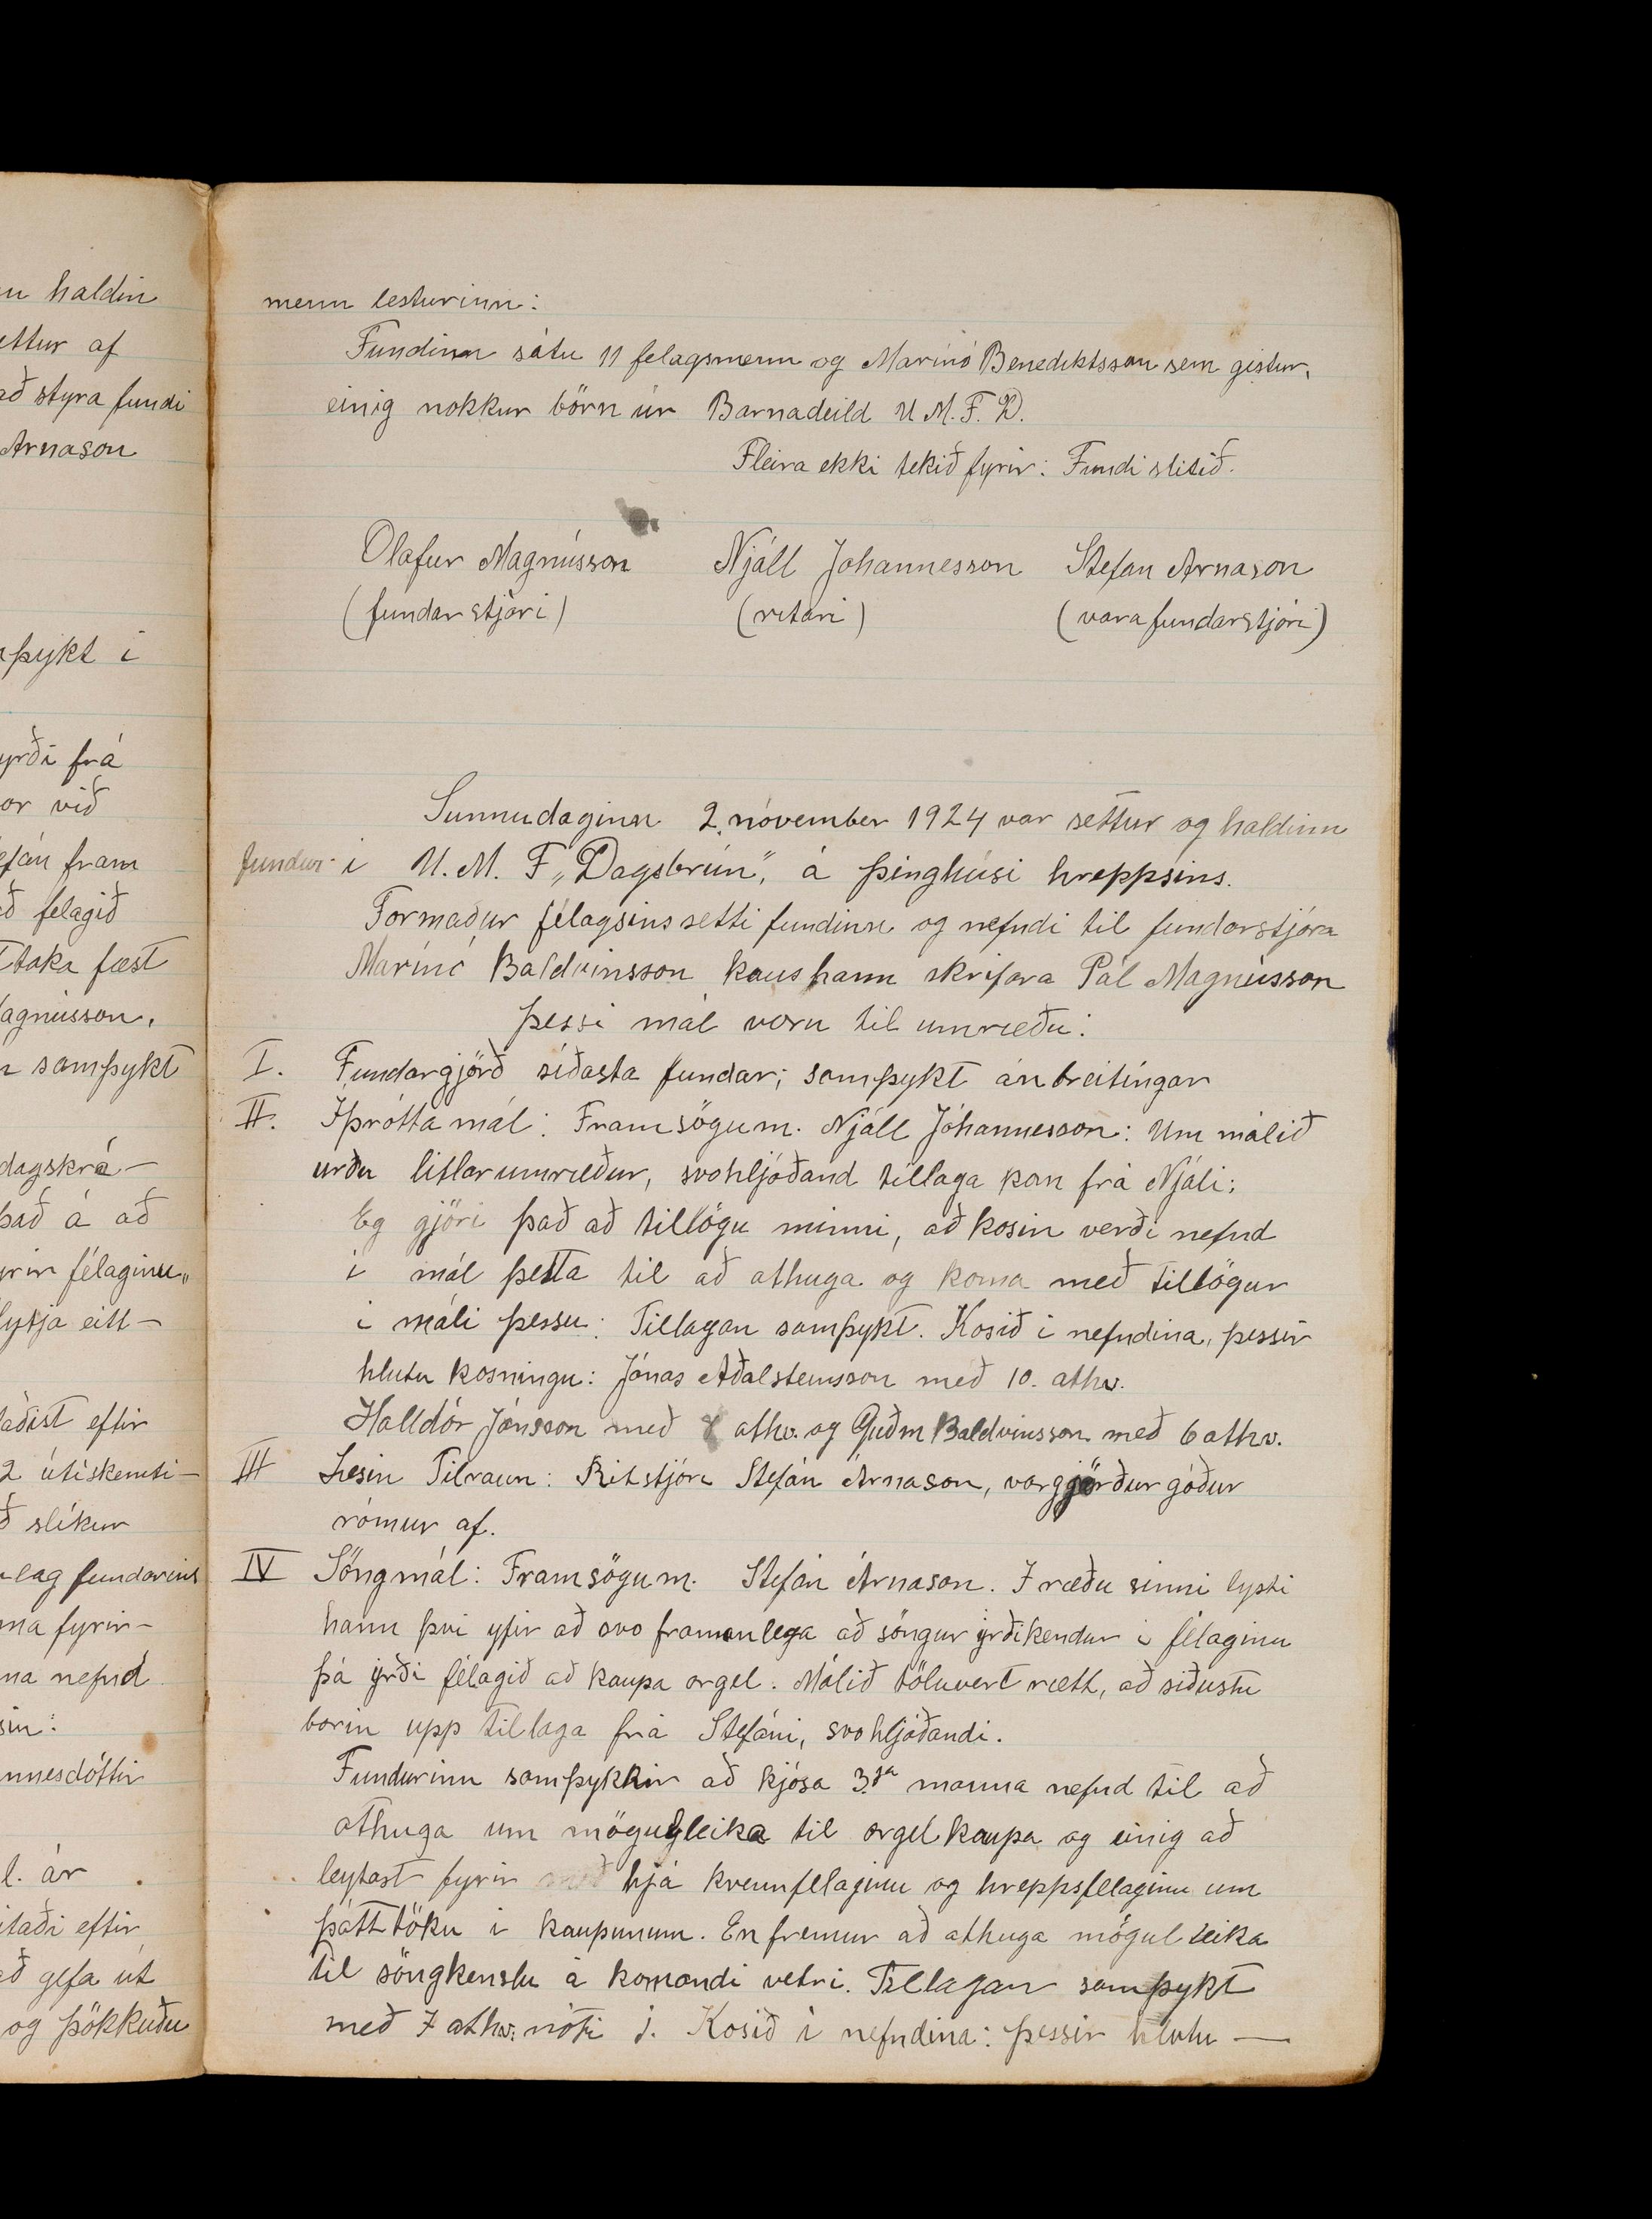 n haldin
ettur af
að styra fundi
Arnason
þykt i
yrði frá
or við
efán fram
ð felagið
taka fæst
agnússon.
samþykt
dagskrá-
það á að
yrir félaginu„
lytja eitt-
aðist eftir
2 útiskemti-
ð slíkur
lag fundarins
ma fyrir-
na nefnd
sin:
nnesdóttir
l. ár
itaði eftir
að gefa út
og þökkuðu
menn lesturinn:
Fundinn sátu 11 felagsmenn og Marinó Benediktsson sem gistur,
einig nokkur börn úr Barnadeild U M. F. D.
Fleira ekki tekið fyrir: Fundi slitið.
Olafur Magnússon Njáll Johannesson Stefan Arnason
(fundarstjóri) (ritari) (varafundarstjóri)
Sunnudaginn 2. nóvember 1924 var settur og haldinn
fundur i U. M. F „Dagsbrún", á þinghúsi hreppsins.
Formaður félagsins setti fundinn og nefndi til fundarstjóra
Marínó Baldvinsson kaus hann skrifara Pál Magnússon
þessi mál voru til umræðu:
I. Fundargjörð síðasta fundar; samþykt án breitingar
II. Iþrótta mál: Framsögum. Njáll Jóhannesson: Um málið
urðu litlar umræður, svohljóðand tillaga kom frá Njáli:
Eg gjöri það að tillögu minni, að kosin verði nefnd
i mál þetta til að athuga og koma með tillögur
i máli þessu: Tillagan samþykt. Kosið i nefndina, þessir
hlutu kosningu: Jónas Aðalsteinsson með 10. athv.
Halldór Jónsson með 8 athv. og Guðm Baldvinsson með 6 athv.
III Lesin Tilraun: Ritstjóri Stefán Árnason, var gjörður góður
rómur af.
IV Söngmál: Framsögum. Stefán Árnason. I ræðu sinni lysti
hann þvi yfir að svo framanlega að söngur yrði kendur i félaginu
þá yrði félagið að kaupa orgel. Málið töluvert rætt, að siðustu
borin upp tillaga frá Stefáni, svohljóðandi.
Fundurinn samþykkir að kjósa 3.ja manna nefnd til að
athuga um mögugleika til orgelkaupa og einig að
leytast fyrir með hjá kvennfelaginu og hreppsfelaginu um
þátttöku i kaupunum. En fremur að athuga mögulleika
til söngkenslu á komandi vetri. Tillagan samþykt
með 7 athv: móti 1. Kosið i nefndina: þessir hlutu —